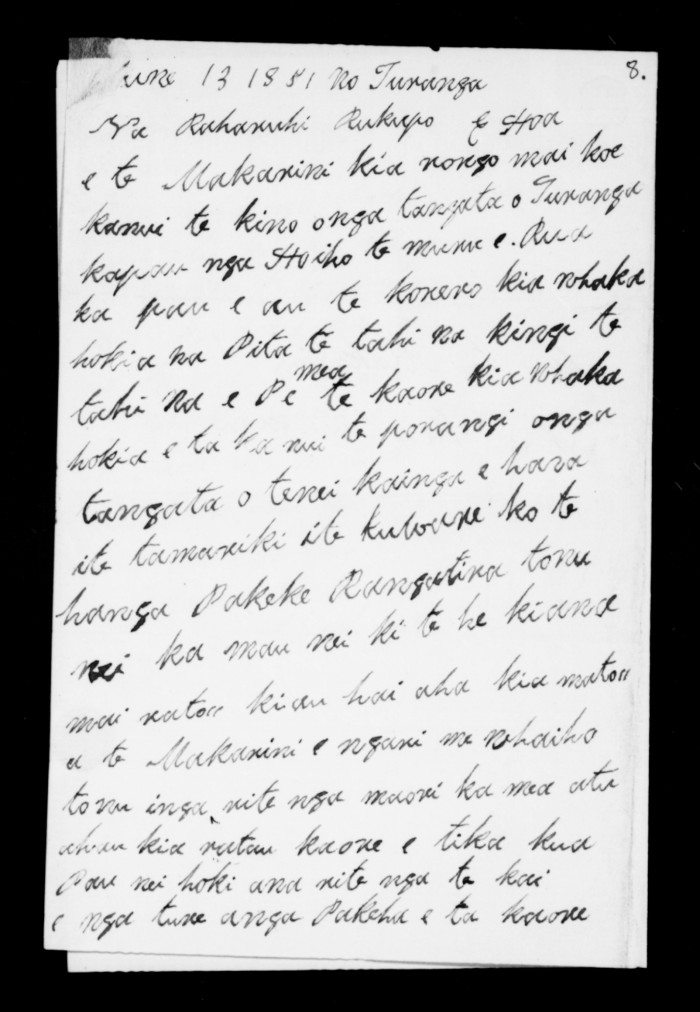 8.
June 13 1851 No Turanga
Na Raharuhi Rukupo E Hoa
e te Makarini kia rongo mai koe
kanui te kino onga tangata o Turanga
kapau nga Hoiho te muru e. Rua
ka pau e au te korero kia whaka
hokia na Pita te tahi na kingi te
tahi na e Pe mea te kaore kia whaka
hokia e ta ka nui te porangi onga
tangata o tenei kainga e hara
ite tamariki ite kuware ko te
hanga Pakeke Rangatira tonu
nei ka mau nei ki te he kiana
mai ratou kiau hai aha kia matou
a te Makarini e ngari me whaiho
tonu inga rite nga maori ka mea atu
ahau kia ratau kaore e tika kua
Pau nei hoki ana rite nga te kai
e nga ture anga Pakeha e ta kaore